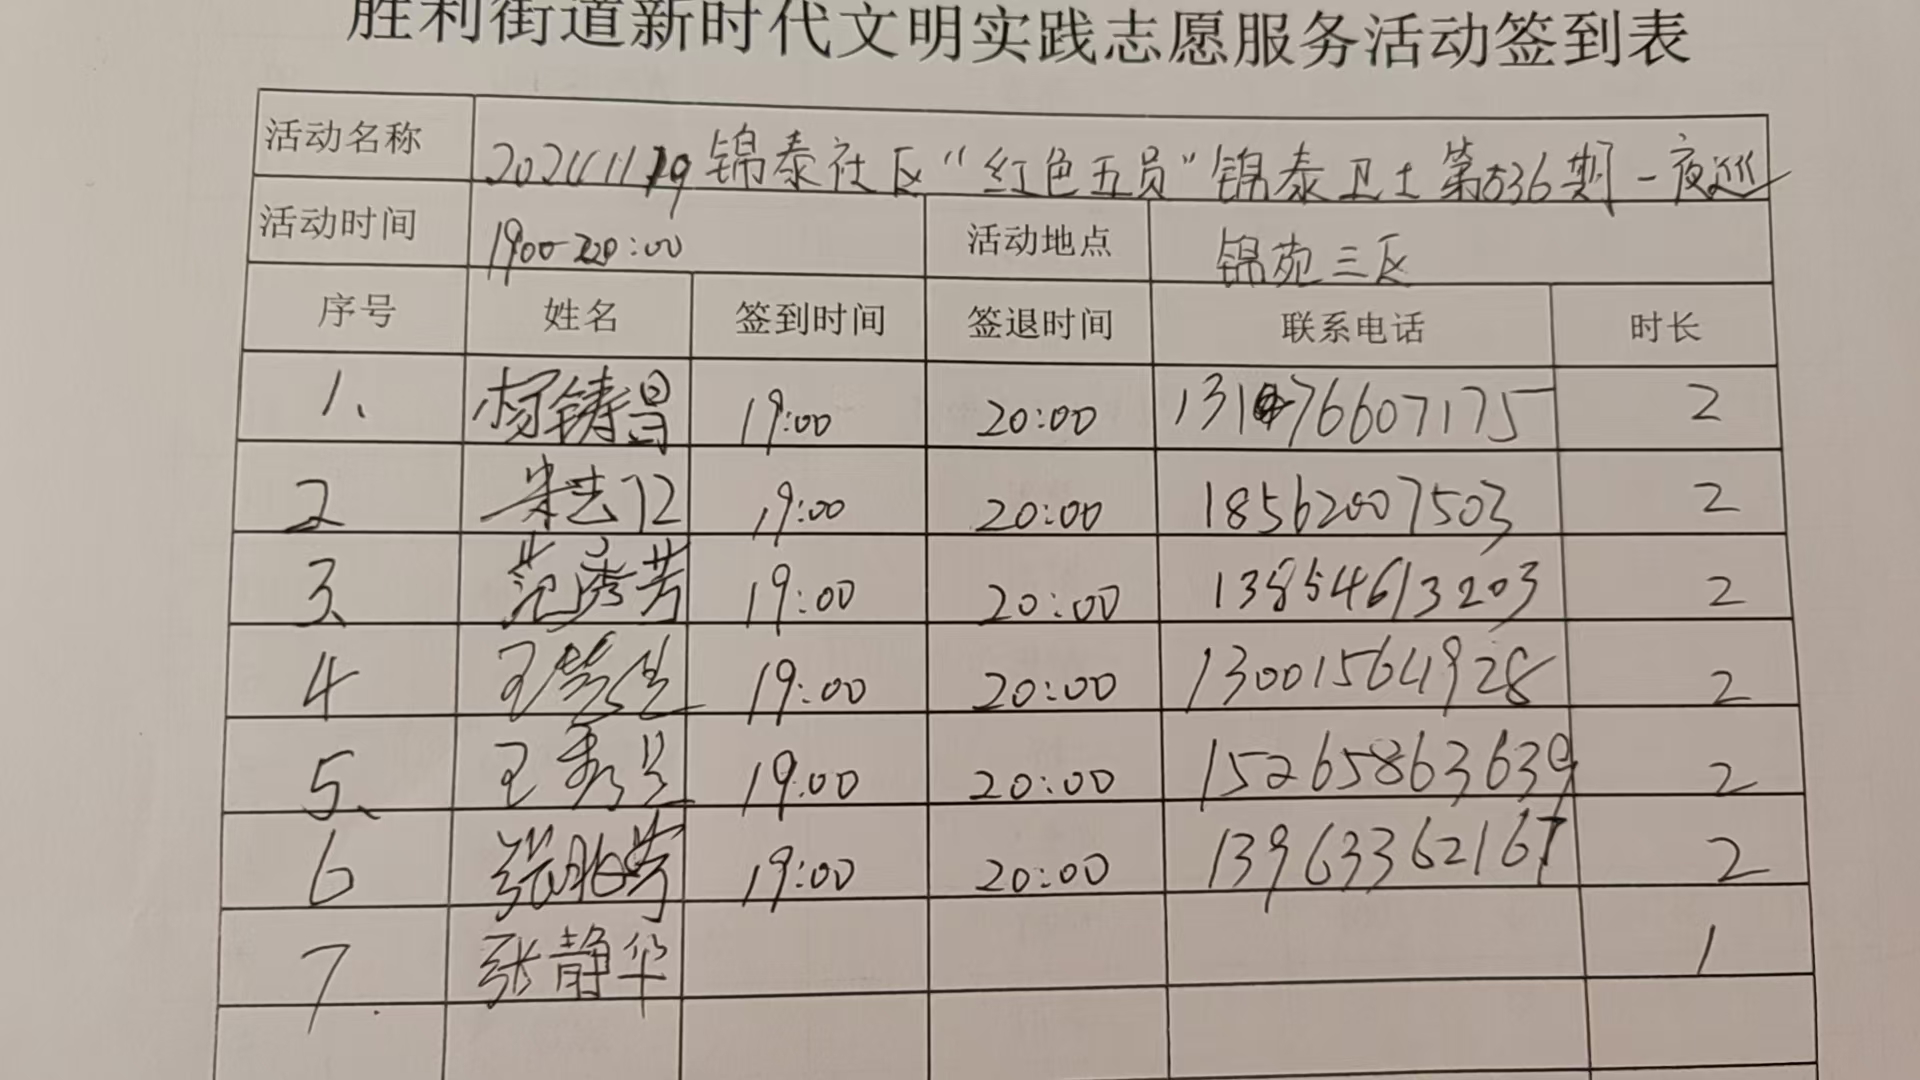 胜利街道新时代文明实践志愿服务活动签到表
活动名称 20241119 锦泰社区“红色五员”锦泰卫士第536期-夜巡
活动时间 1900-20:00 活动地点 锦苑三区
序号 姓名 签到时间 签退时间 联系电话 时长
1、 杨铸昌 19:00 20:00 13176607175 2
2 19:00 20:00 18562007503 2
3、 范秀芳 19:00 20:00 13854613203 2
4 19:00 20:00 13001564928 2
5、 王秀兰 19:00 20:00 15265863639 2
6 19:00 20:00 13963362167 2
7. 张静华 1